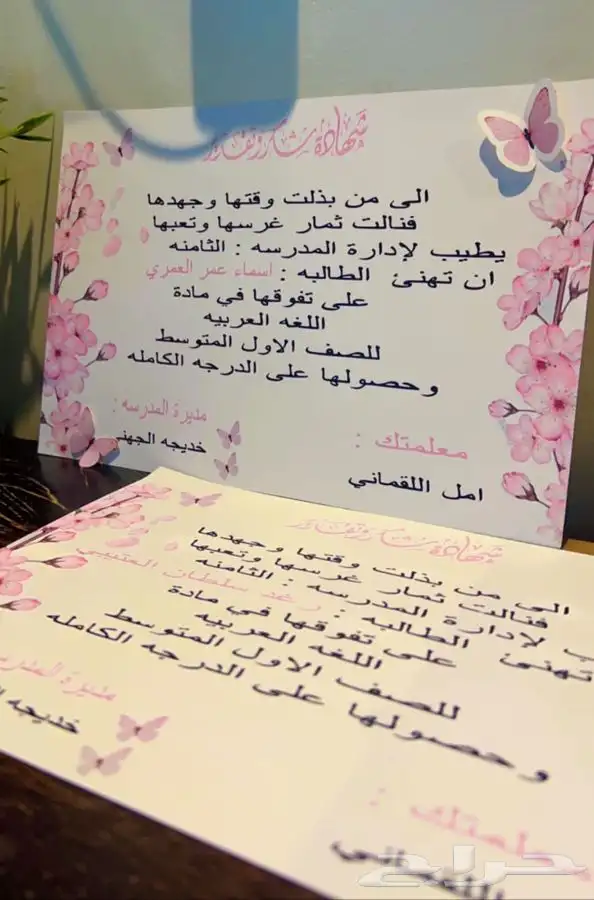 شهادة شكر وتقدير
الى من بذلت وقتها وجهدها
فنالت ثمار غرسها وتعبها
يطيب لإدارة المدرسه : الثامنه
ان تهنئ الطالبه : اسماء عمر العمري
على تفوقها في مادة
اللغه العربيه
للصف الاول المتوسط
وحصولها على الدرجه الكامله
معلمتك :
مديرة المدرسه :
امل اللقماني
خديجه الجهني
شهادة شكر وتقدير
الى من بذلت وقتها وجهدها
فنالت ثمار غرسها وتعبها
ب لإدارة المدرسه : الثامنه
تهنئ الطالبه : رغد سلطان العتيبي
على تفوقها في مادة
اللغه العربيه
للصف الاول المتوسط
وحصولها على الدرجه الكامله
مديرة المدرس
خديجه ال
معلمتك :
اللقماني
حراج